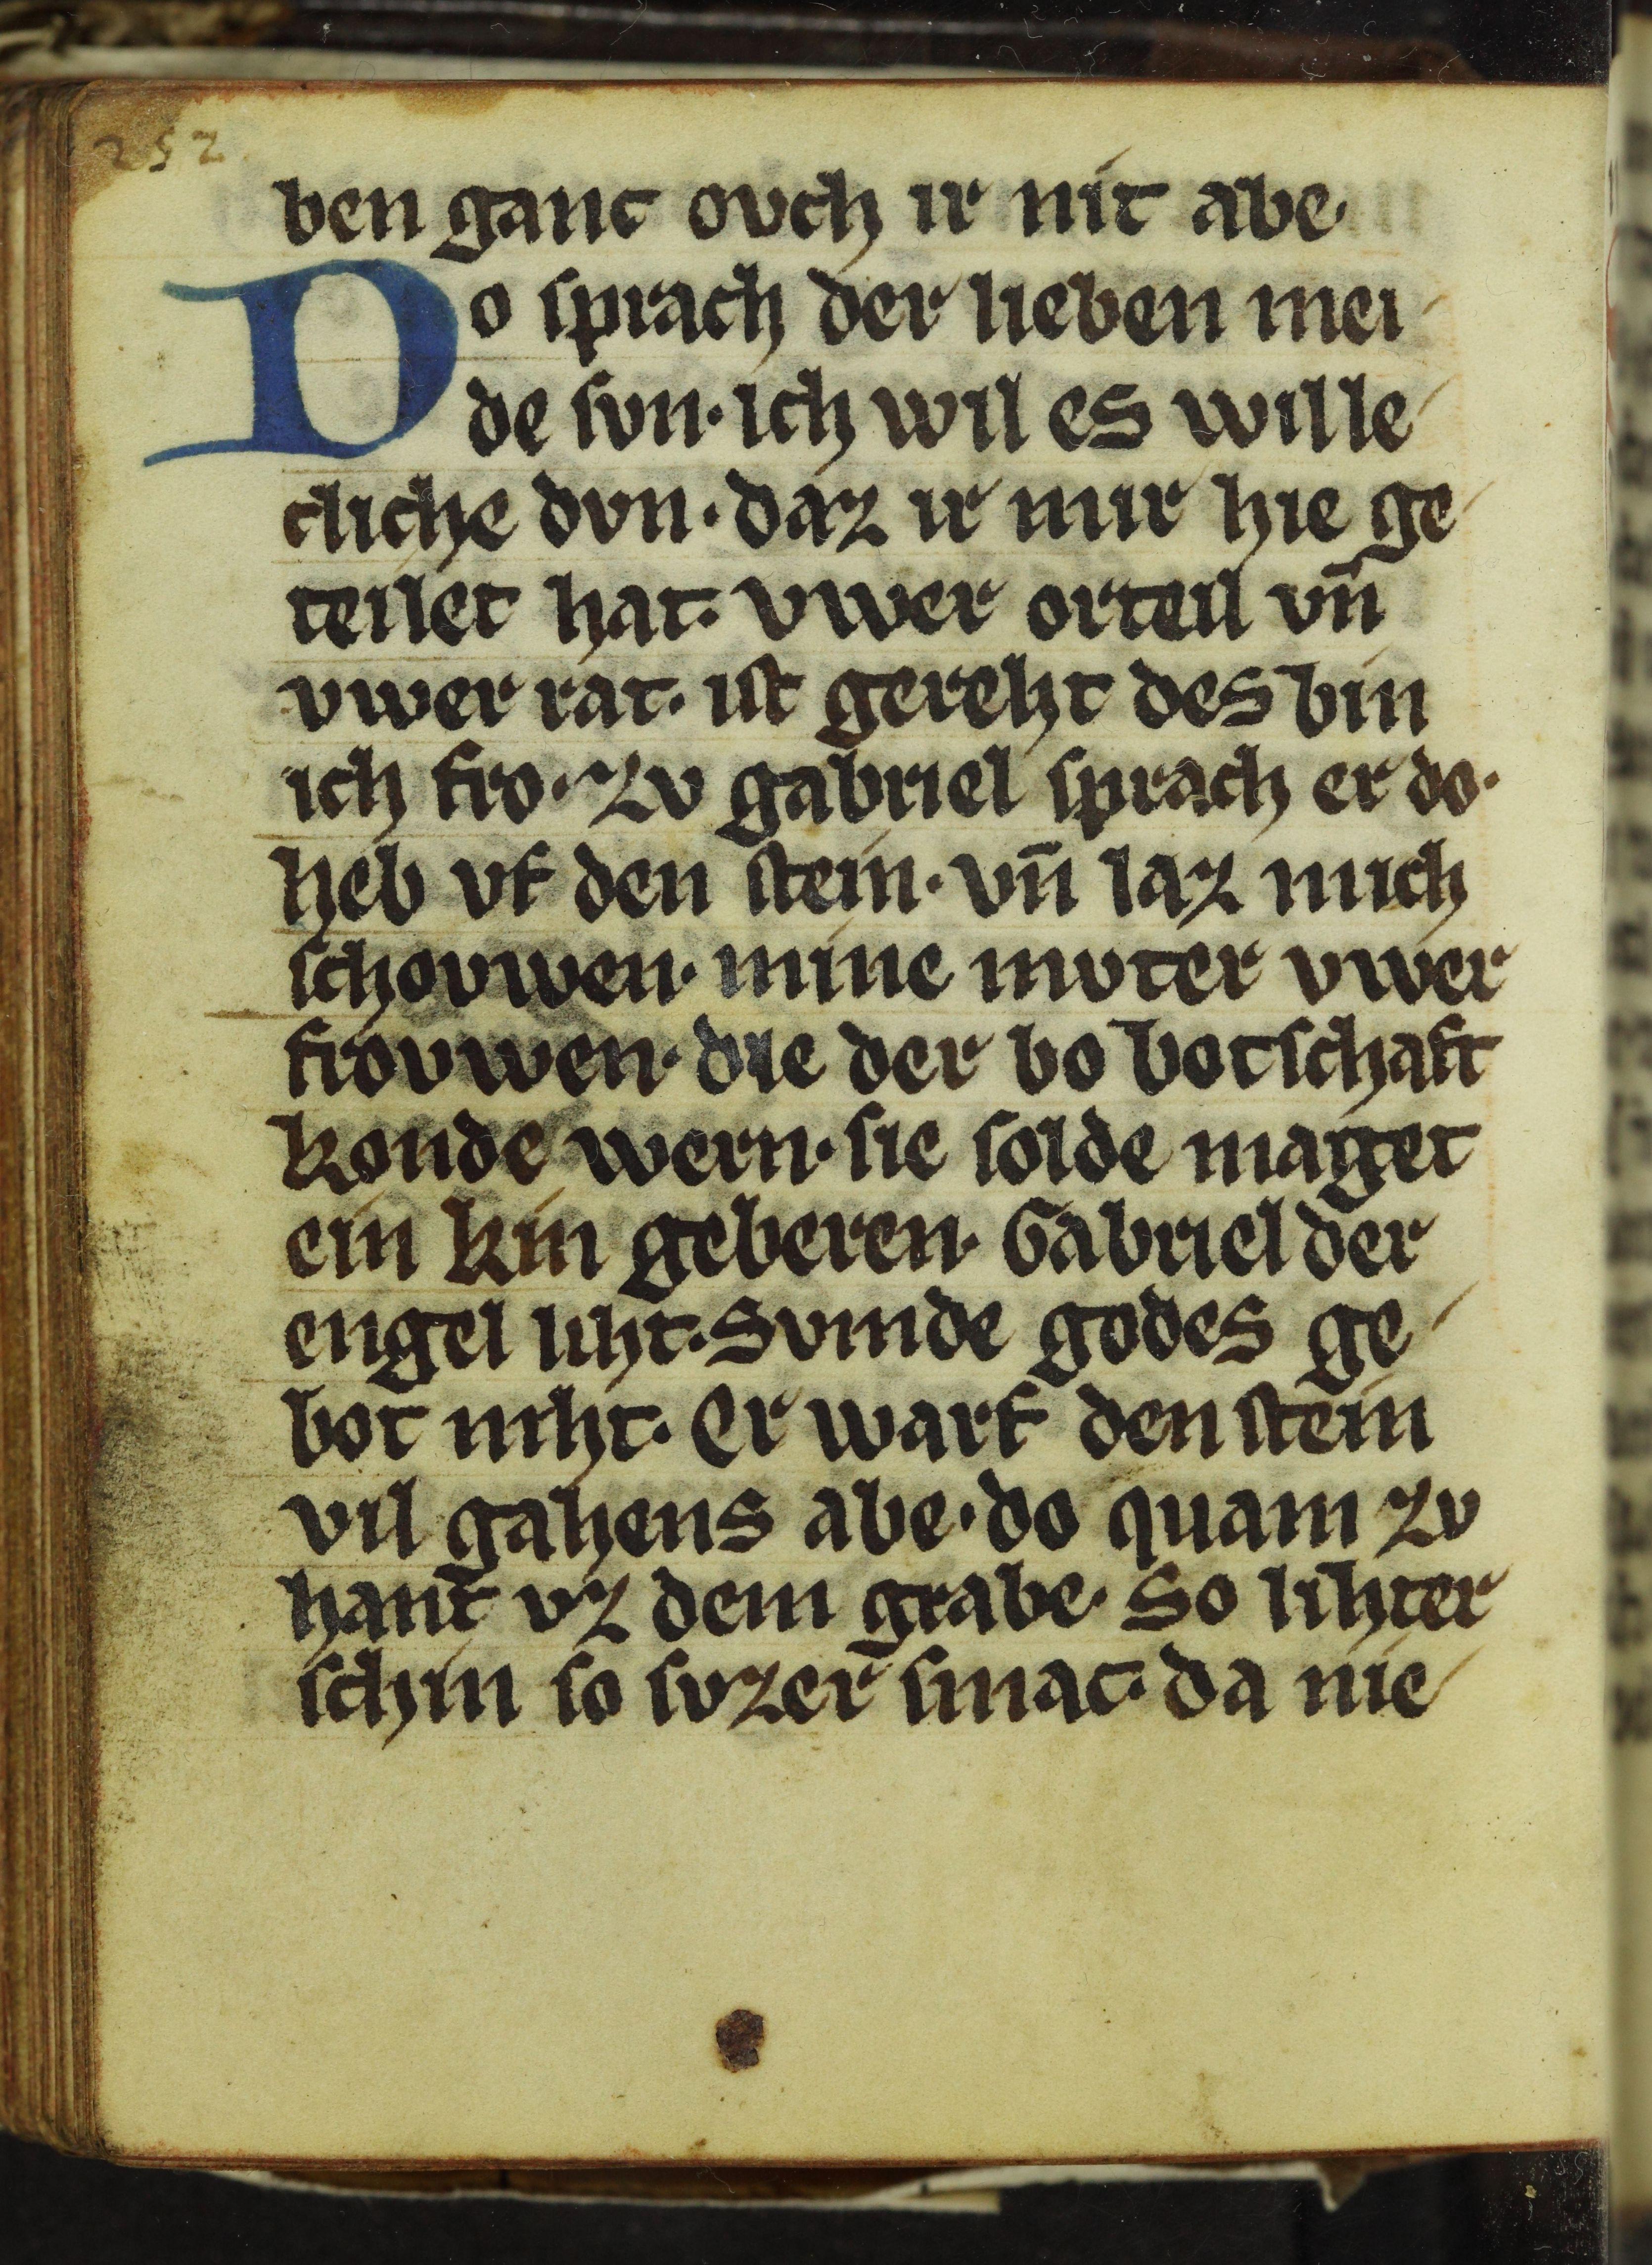 252
ben ganc ovch ir nit abe.
Do ſprach der lieben mei
de ſvn· ich wil es wille
cliche dvn· daz ir mir hie ge
teilet hat· vwer orteil vn̄
vwer rat· iſt gereht des bin
ich fro· zv gabriel ſprach er do·
heb vf den ſtein· vn̄ laz mich
ſchovwen· mine mvter vwer
frovwen· die der bo botſchaft
konde wern· ſie ſolde maget
ein kin geberen· Gabriel der
engel liht· Svmde godes ge
bot niht· Er warf den ſtein
vil gahens abe· do quam zv
hant vz dem grabe· So lihter
ſchin ſo ſvzer ſmac· da nie